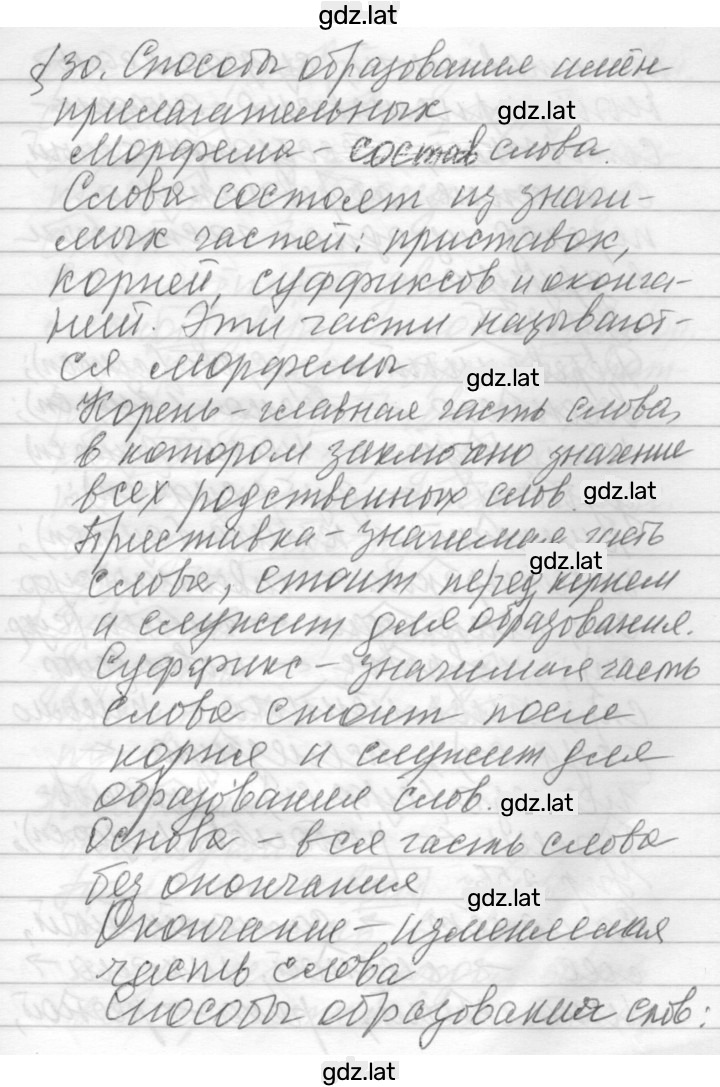 gdz.lat
§30. Способы образования имён
прилагательных gdz.lat
Морфема – состав слова.
Слова состоят из значи-
мых частей: приставок,
корней, суффиксов и оконча-
ний. Эти части называют-
ся морфемы
gdz.lat
Корень – главная часть слова,
в котором заключено значение
всех родственных слов. gdz.lat
Приставка – значимая часть
gdz.lat
слова, стоит перед корнем
и служит для образования.
Суффикс – значимая часть
слова стоит после
корня и служит для
образования слов. gdz.lat
Основа – вся часть слова
без окончания
gdz.lat
Окончание – изменяемая
часть слова
Способы образования слов:
gdz.lat